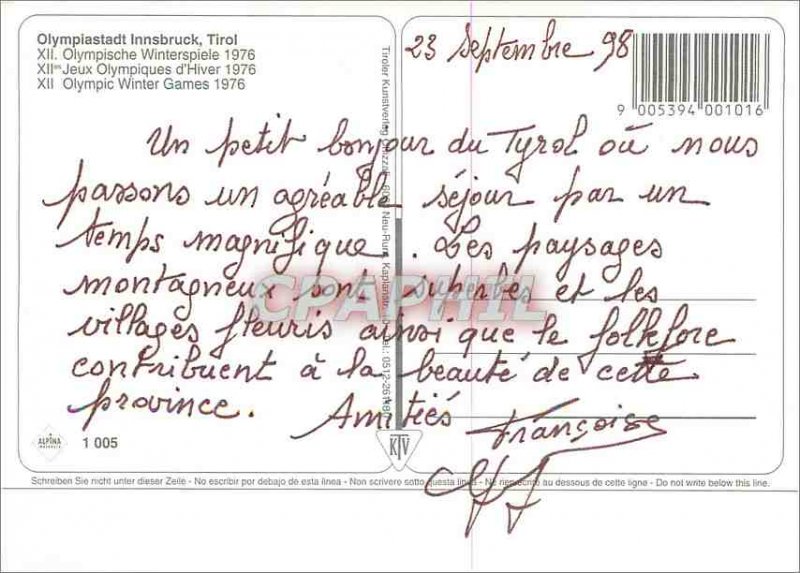 Olympiastadt Innsbruck, Tirol
XII. Olympische Winterspiele 1976
XIIes Jeux Olympiques d'Hiver 1976
XII Olympic Winter Games 1976
23 Septembre 98
9 005394 001016
Un petit bonjour du Tyrol où nous
passons un agréable séjour par un
temps magnifique. Les paysages
montagneux sont superbes et les
villages fleuris ainsi que le folklore
contribuent à la beauté de cette
province. Amitiés Françoise
Tiroler Kunstverlag Neu-Rum, Kaplanstr. Tel.: 0512-
CPAPHIL
ALPINA
1 005
KTV
Schreiben Sie nicht unter dieser Zeile - No escribir por debajo de esta linea - Non scrivere sotto questa linea - Ne pas écrire au dessous de cette ligne - Do not write below this line.